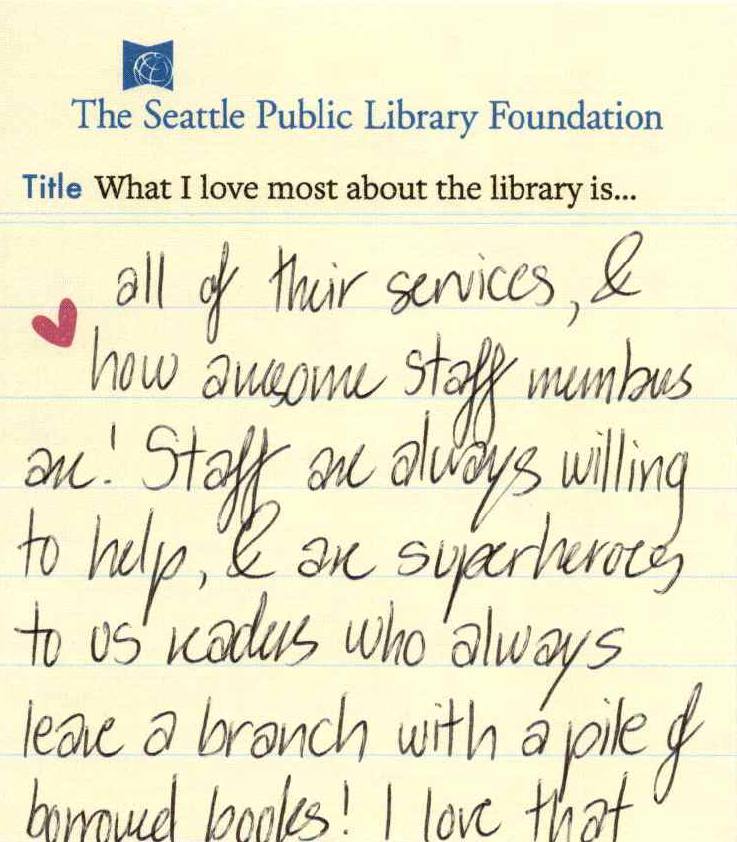 The Seattle Public Library Foundation
Title What I love most about the library is...
all of their services, &
how awesome staff members
are! Staff are always willing
to help, & are superheroes
to us readers who always
leave a branch with a pile of
borrowed books! I love that